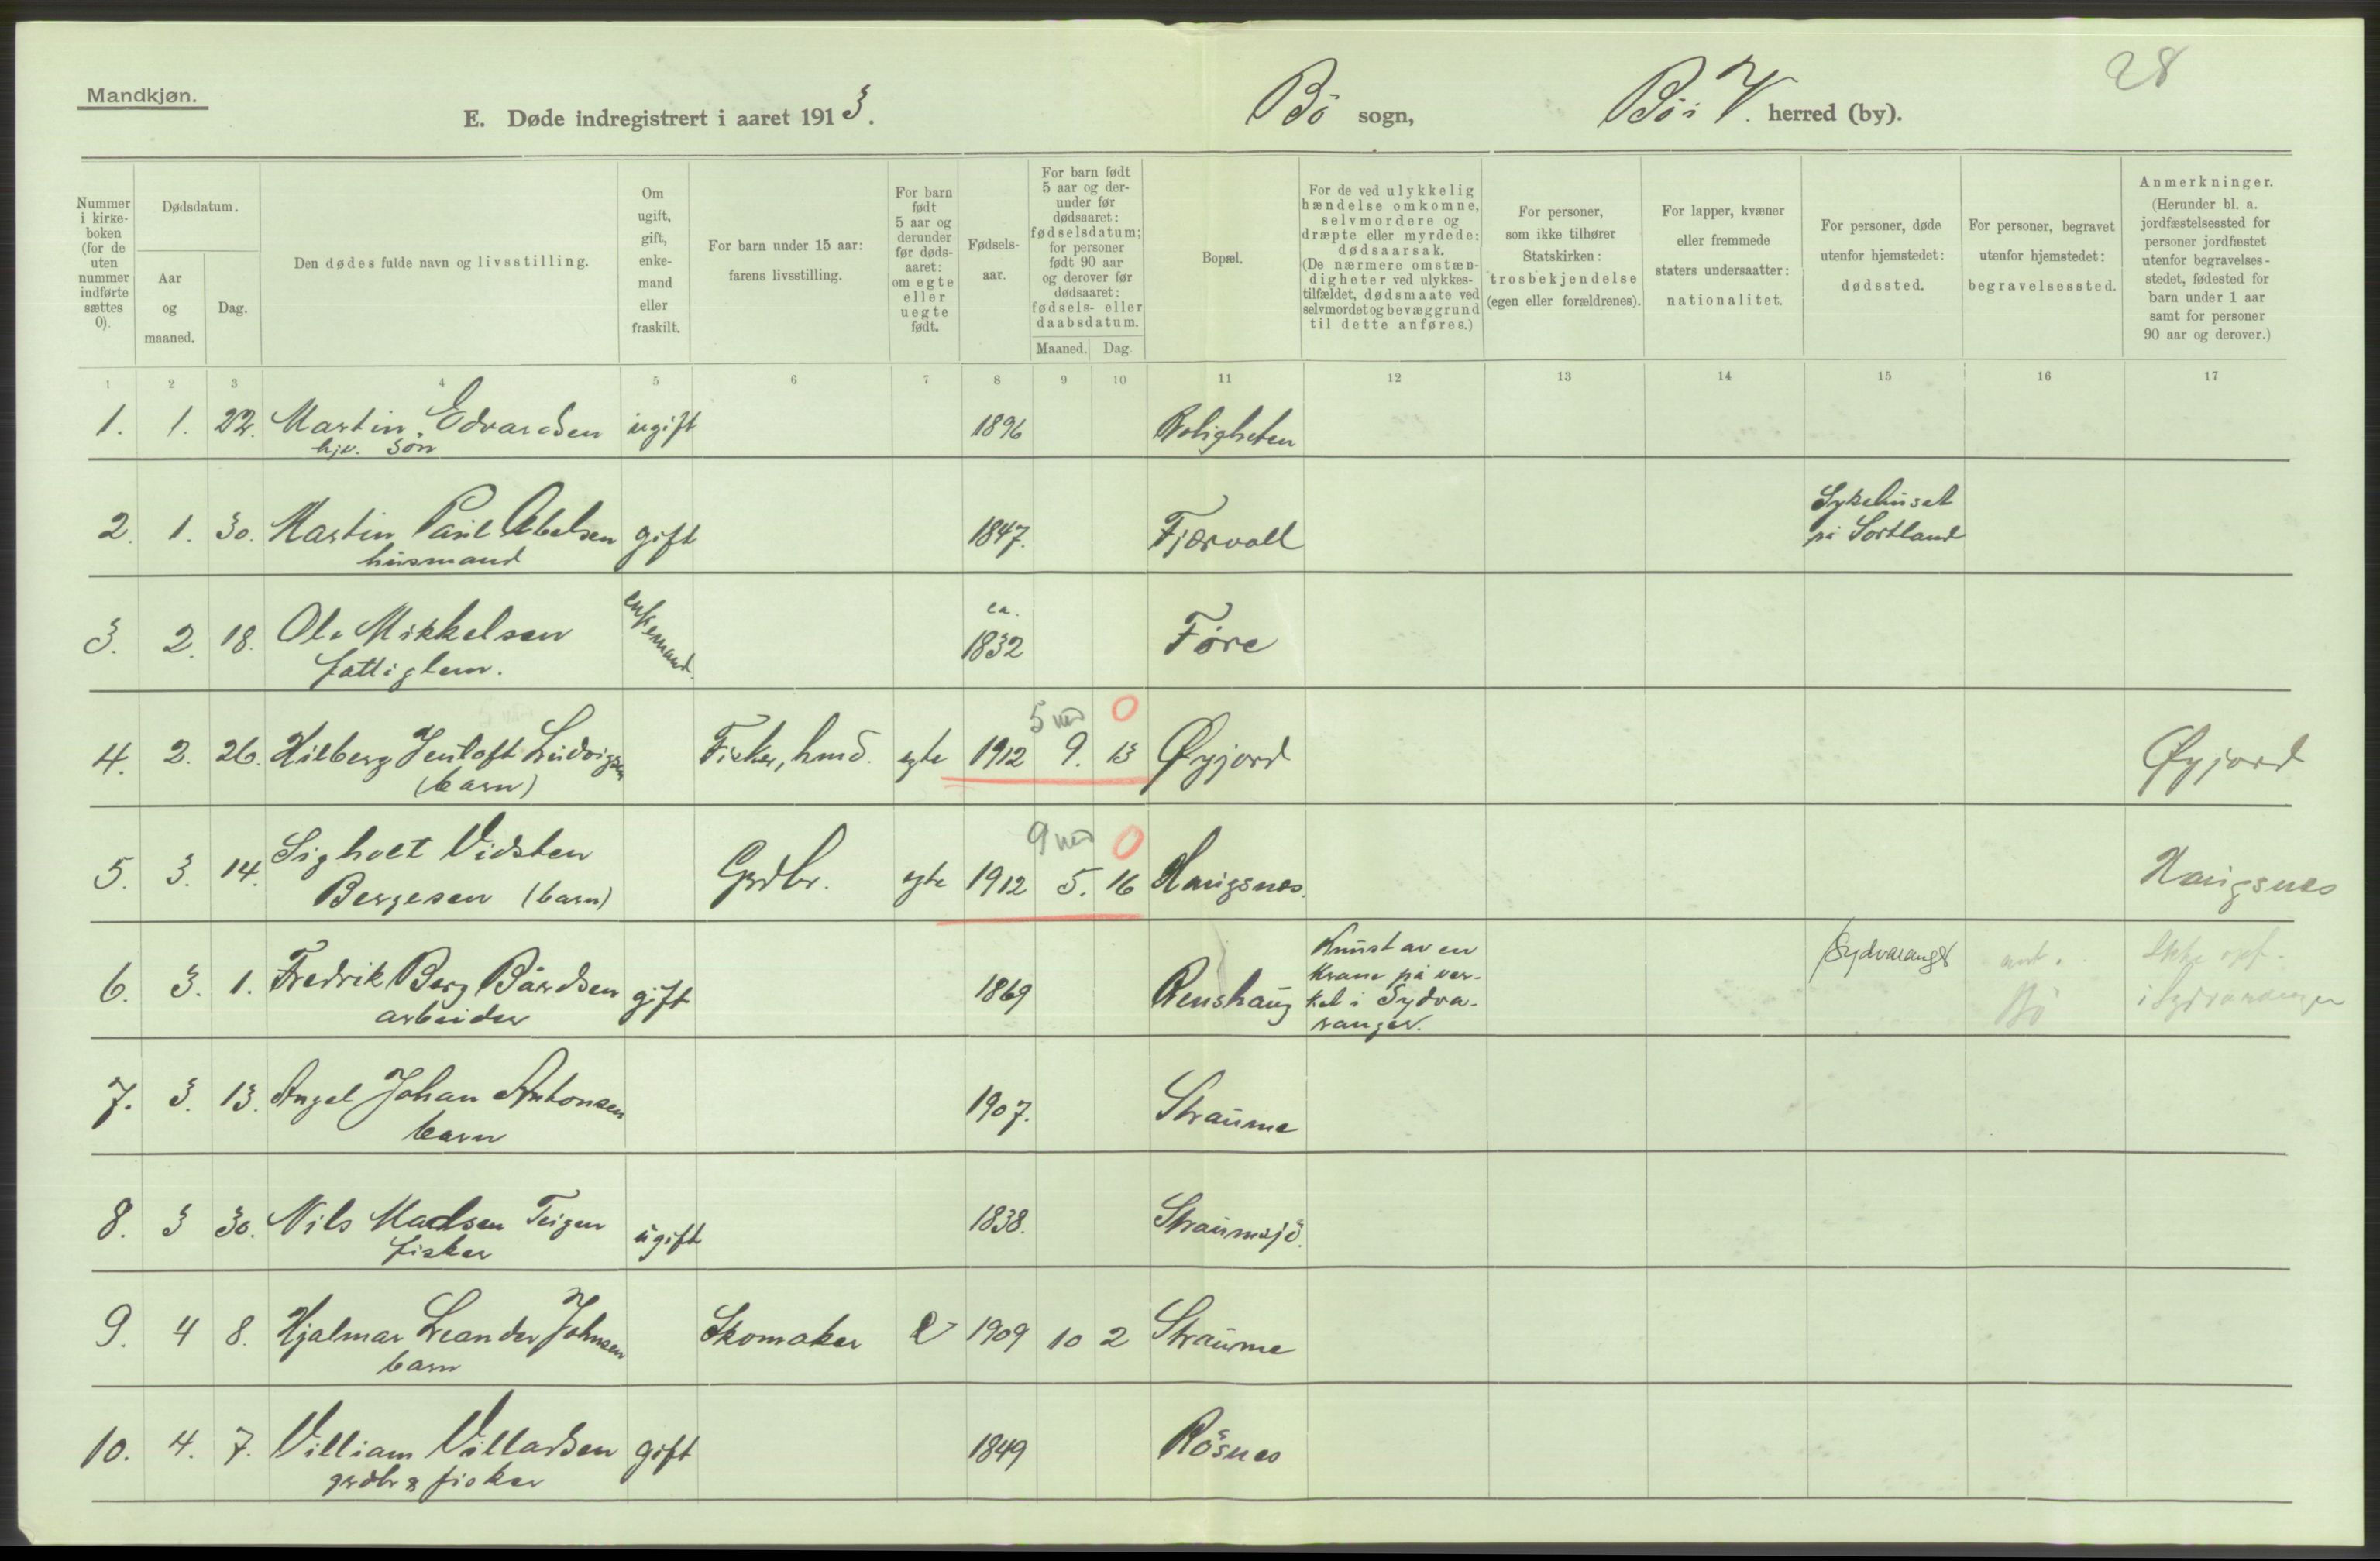 28
Mandkjøn.
E. Døde indregistrert i aaret 1913. Bö sogn, Bö i V. herred (by).
Nummer i kirke-boken (for de uten nummer indførte sættes 0).
Dødsdatum.
Aar og maaned.
Dag.
Den dødes fulde navn og livsstilling.
Om ugift, gift, enke-mand eller fraskilt.
For barn under 15 aar: farens livsstilling.
For barn født 5 aar og derunder før døds-aaret: om egte eller uegte født.
Fødsels-aar.
For barn født 5 aar og der-under før dødsaaret: fødselsdatum; for personer født 90 aar og derover før dødsaaret: fødsels- eller daabsdatum.
Maaned. Dag.
Bopæl.
For de ved ulykkelig hændelse omkomne, selvmordere og dræpte eller myrdede: dødsaarsak. (De nærmere omstæn-digheter ved ulykkes-tilfældet, dødsmaate ved selvmordet og bevæggrund til dette anføres.)
For personer, som ikke tilhører Statskirken: trosbekjendelse (egen eller forældrenes).
For lapper, kvæner eller fremmede staters undersaatter: nationalitet.
For personer, døde utenfor hjemstedet: dødssted.
For personer, begravet utenfor hjemstedet: begravelsessted.
Anmerkninger. (Herunder bl. a. jordfæstelsessted for personer jordfæstet utenfor begravelses-stedet, fødested for barn under 1 aar samt for personer 90 aar og derover.)
1 2 3 4 5 6 7 8 9 10 11 12 13 14 15 16 17
1. 1. 22. Martin Edvardsen ugift 1896 Roligheten
hjv. sön
2. 1. 30. Martin Paul Abelsen gift 1847. Fjærvoll Sykehuset på Sortland
husmand
3. 2. 18. Ole Mikkelsen enkemand ca. 1832 Føre
fattiglem.
5 md 0
4. 2. 26. Hilberg Jentoft Ludvigsen Fisker, hmd. egte 1912 9. 13 Øyjord Øyjord
(barn)
9 md 0
5. 3. 14. Sighvet Vidsten Grdbr. egte 1912 5. 16 Haugsnes. Haugsnes
Bergesen (barn)
6. 3. 1. Fredrik Berg Bårdsen gift 1869 Renshaug Knust av en Krane på ver-ket i Sydva-ranger. Sydvaranger ant. Bö Ikke opf. i Sydvaranger
arbeider
7. 3. 13. Angel Johan Antonsen 1907. Straume
barn
8. 3 30. Nils Madsen Teigen ugift 1838. Straumsjö.
fisker
9. 4 8. Hjalmar Leander Johnsen Skomaker e 1909 10 2 Straume
barn
10. 4. 7. Villiam Villadsen gift 1849 Rösnes
grdbr & fisker